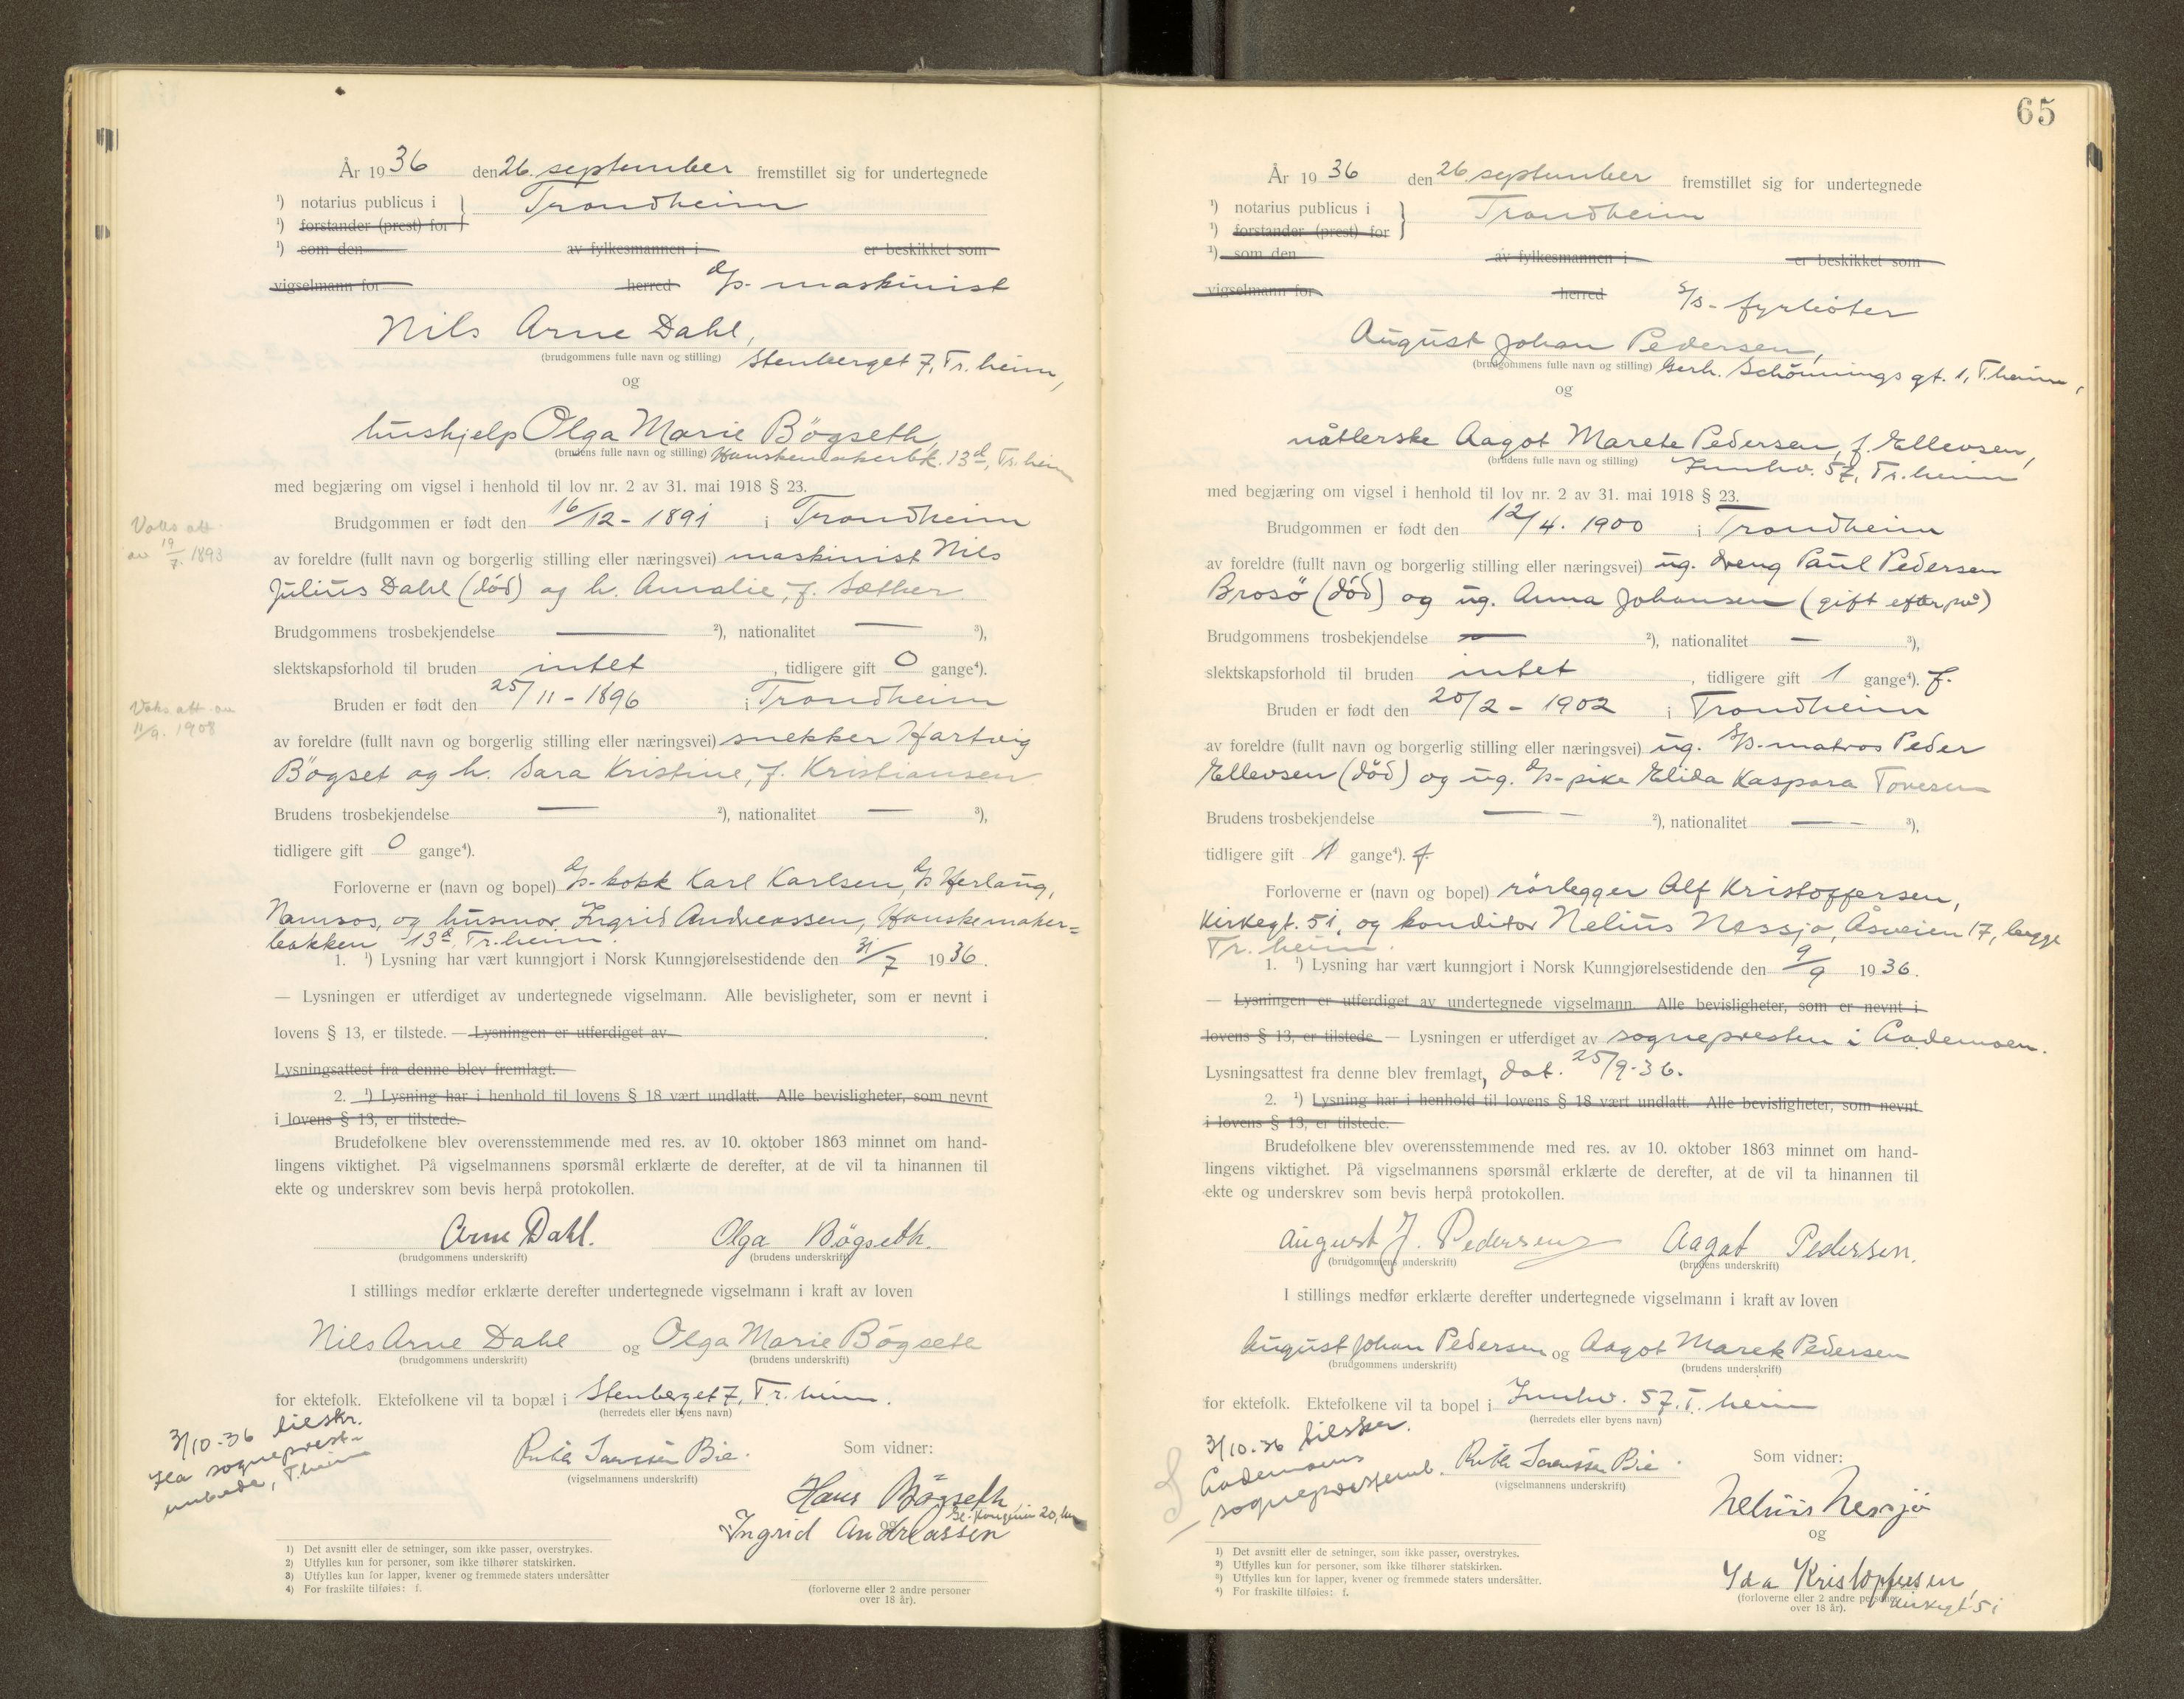 År 1936 den 26. september fremstillet sig for undertegnede
¹) notarius publicus i } Trondheim
¹) forstander (prest) for
¹) som den av fylkesmannen i er beskikket som
vigselmann for herred d/s- maskinist
Nils Arne Dahl,
(brudgommens fulle navn og stilling) Stenberget 7, Tr.heim,
og
hushjelp Olga Marie Bögseth,
(brudens fulle navn og stilling) Hanskemakerbk. 13d, Tr.heim
med begjæring om vigsel i henhold til lov nr. 2 av 31. mai 1918 § 23.
Brudgommen er født den 16/12 - 1891 i Trondheim
Vaks att.
av 19/7. 1893
av foreldre (fullt navn og borgerlig stilling eller næringsvei) maskinist Nils
Julius Dahl (död) og h. Amalie, f. Sæther
Brudgommens trosbekjendelse — ²), nationalitet — ³),
slektskapsforhold til bruden intet, tidligere gift 0 gange⁴).
Bruden er født den 25/11 - 1896 i Trondheim
Vaks att. av
11/9. 1908
av foreldre (fullt navn og borgerlig stilling eller næringsvei) snekker Hartvig
Bögset og h. Sara Kristine, f. Kristiansen
Brudens trosbekjendelse — ²), nationalitet — ³),
tidligere gift 0 gange⁴).
Forloverne er (navn og bopel) d/s-kokk Karl Karlsen, d/s Herlaug,
Namsos, og husmor Ingrid Andreassen, Hanskemaker=
bakken 13d, Tr.heim.
1. ¹) Lysning har vært kunngjort i Norsk Kunngjørelsestidende den 31/7 1936.
— Lysningen er utferdiget av undertegnede vigselmann. Alle bevisligheter, som er nevnt i
lovens § 13, er tilstede. — Lysningen er utferdiget av
Lysningsattest fra denne blev fremlagt.
2. ¹) Lysning har i henhold til lovens § 18 vært undlatt. Alle bevisligheter, som nevnt
i lovens § 13, er tilstede.
Brudefolkene blev overensstemmende med res. av 10. oktober 1863 minnet om hand-
lingens viktighet. På vigselmannens spørsmål erklærte de derefter, at de vil ta hinannen til
ekte og underskrev som bevis herpå protokollen.
Arne Dahl. Olga Bögseth.
(brudgommens underskrift) (brudens underskrift)
I stillings medfør erklærte derefter undertegnede vigselmann i kraft av loven
Nils Arne Dahl og Olga Marie Bögseth
(brudgommens underskrift) (brudens underskrift)
for ektefolk. Ektefolkene vil ta bopæl i Stenberget 7, Tr.heim.
(herredets eller byens navn)
3/10-36 tilskr.
Ila sogneprest-
embede, T.heim
Ruth Sørenssen Bie.
(vigselmannens underskrift)
Som vidner:
Hans Bögseth
og
Ingrid Andreassen
(forloverne eller 2 andre personer
over 18 år).
1) Det avsnitt eller de setninger, som ikke passer, overstrykes.
2) Utfylles kun for personer, som ikke tilhører statskirken.
3) Utfylles kun for lapper, kvener og fremmede staters undersåtter
4) For fraskilte tilføies: f.
65
År 1936 den 26. september fremstillet sig for undertegnede
¹) notarius publicus i } Trondheim
¹) forstander (prest) for
¹) som den av fylkesmannen i er beskikket som
vigselmann for herred s/s- fyrböter
August Johan Pedersen,
(brudgommens fulle navn og stilling) Gerh. Schönnings gt. 1, T.heim,
og
nåtlerske Aagot Marete Pedersen, f. Ellevsen,
(brudens fulle navn og stilling) Innhv. 57, Tr.heim
med begjæring om vigsel i henhold til lov nr. 2 av 31. mai 1918 § 23.
Brudgommen er født den 12/4. 1900 i Trondheim
av foreldre (fullt navn og borgerlig stilling eller næringsvei) ug. dreng Paul Pedersen
Brosö (död) og ug. Anna Johansen (gift efterpå)
Brudgommens trosbekjendelse — ²), nationalitet — ³),
slektskapsforhold til bruden intet, tidligere gift 1 gange⁴). f.
Bruden er født den 20/2 - 1902 i Trondheim
av foreldre (fullt navn og borgerlig stilling eller næringsvei) ug. d/s-matros Peder
Ellevsen (död) og ug. d/s-pike Elida Kaspara Tovesen
Brudens trosbekjendelse — ²), nationalitet — ³),
tidligere gift 1 gange⁴). f.
Forloverne er (navn og bopel) rörlegger Alf Kristoffersen,
Kirkegt. 5i, og konditor Nelius Nessjø, Åsveien 17, begge
Tr.heim.
1. ¹) Lysning har vært kunngjort i Norsk Kunngjørelsestidende den 9/9 1936.
— Lysningen er utferdiget av undertegnede vigselmann. Alle bevisligheter, som er nevnt i
lovens § 13, er tilstede — Lysningen er utferdiget av sognepresten i Bademoen.
Lysningsattest fra denne blev fremlagt, dat. 25/9-36.
2. ¹) Lysning har i henhold til lovens § 18 vært undlatt. Alle bevisligheter, som nevnt
i lovens § 13, er tilstede.
Brudefolkene blev overensstemmende med res. av 10. oktober 1863 minnet om hand-
lingens viktighet. På vigselmannens spørsmål erklærte de derefter, at de vil ta hinannen til
ekte og underskrev som bevis herpå protokollen.
August J. Pedersen Aagot Pedersen.
(brudgommens underskrift) (brudens underskrift)
I stillings medfør erklærte derefter undertegnede vigselmann i kraft av loven
August Johan Pedersen og Aagot Marete Pedersen
(brudgommens underskrift) (brudens underskrift)
for ektefolk. Ektefolkene vil ta bopel i Innhv. 57, T.heim
(herredets eller byens navn)
3/10-36 tilskr.
Bademoens
sogneprestemb.
Ruth Sørenssen Bie.
(vigselmannens underskrift)
Som vidner:
Nelius Nessjø
og
Ida Kristoffersen,
Kirkegt 5i
(forloverne eller 2 andre personer
over 18 år).
1) Det avsnitt eller de setninger, som ikke passer, overstrykes.
2) Utfylles kun for personer, som ikke tilhører statskirken.
3) Utfylles kun for lapper, kvener og fremmede staters undersåtter.
4) For fraskilte tilføies: f.